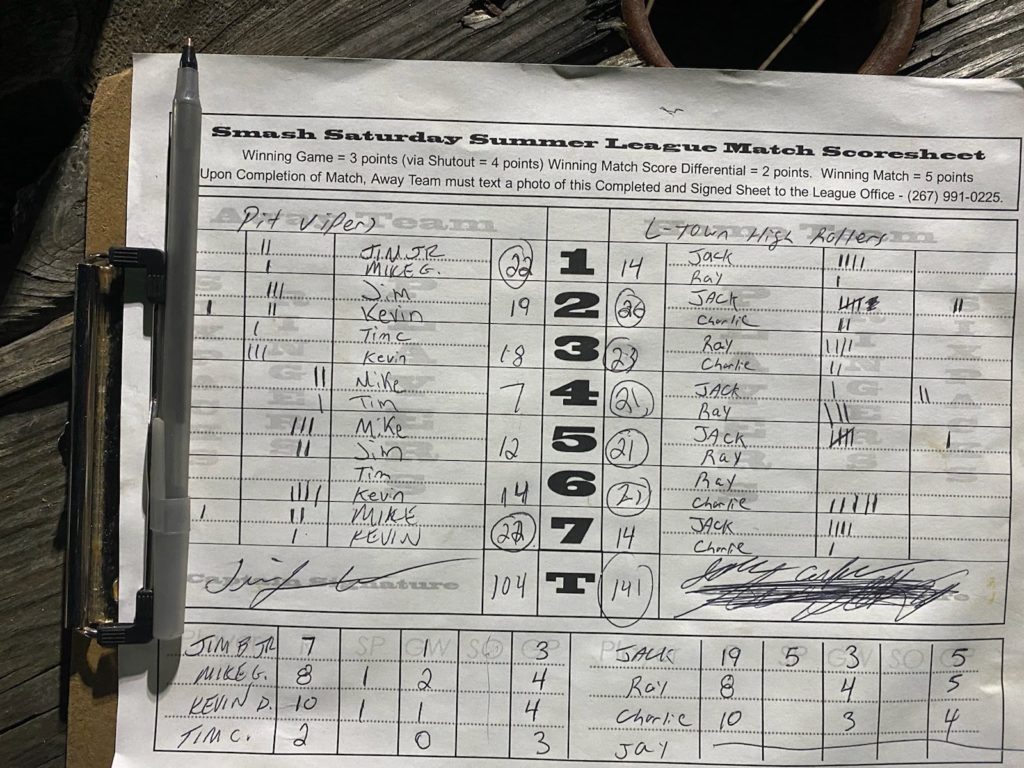 Smash Saturday Summer League Match Scoresheet
Winning Game = 3 points (via Shutout = 4 points) Winning Match Score Differential = 2 points. Winning Match = 5 points
Upon Completion of Match, Away Team must text a photo of this Completed and Signed Sheet to the League Office - (267) 991-0225.
Pit Vipers L-Town High Rollers
JIM JR 22 1 14 Jack
MIKE G. Ray
Jim 19 2 26 JACK
Kevin Charlie
Tim C 18 3 23 Ray
Kevin Charlie
Mike 7 4 21 JACK
Tim Ray
Mike 12 5 21 JACK
Jim Ray
Tim 14 6 21 Ray
Kevin Charlie
MIKE 22 7 14 JACK
KEVIN Charlie
104 T 141
JIM B JR 7 SP 1 SO 3 JACK 19 5 3 SO 5
MIKE G. 8 1 2 4 Ray 8 4 5
KEVIN D. 10 1 1 4 Charlie 10 3 4
TIM C. 2 0 3 JAY